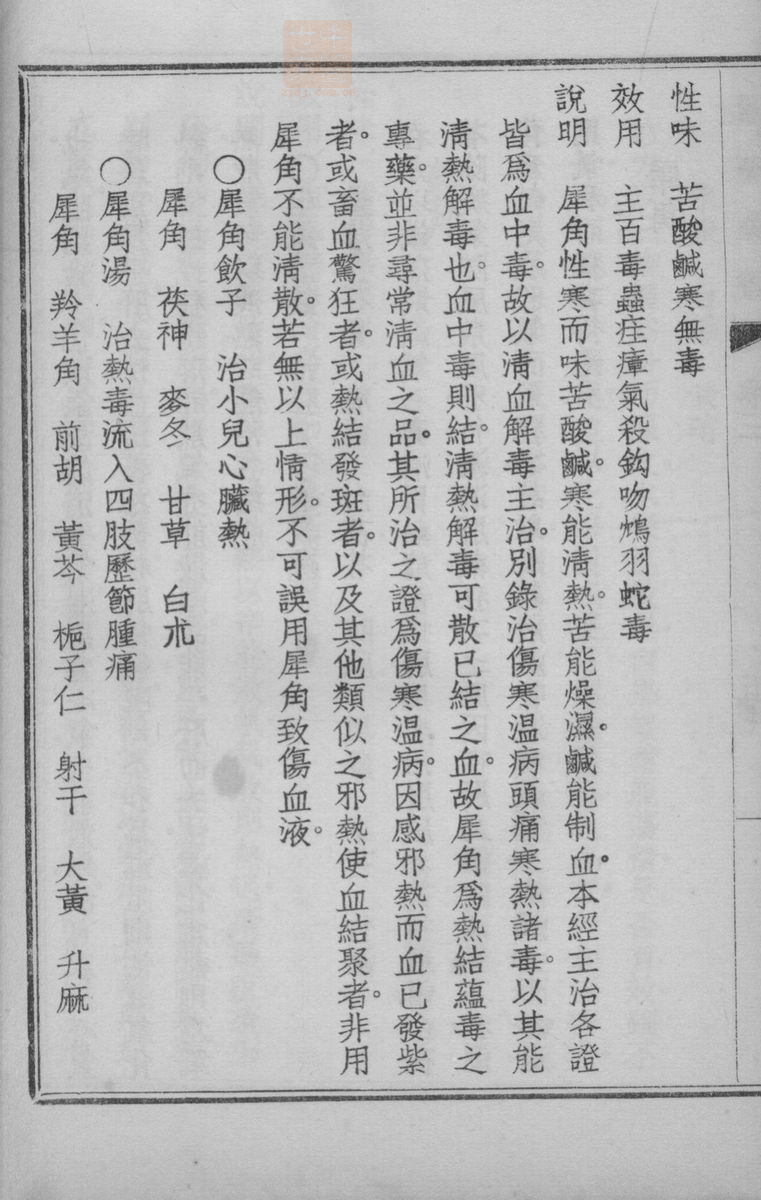 性味　苦酸鹹寒無毒
效用　主百毒蟲疰瘴氣殺鈎吻鴆羽蛇毒
說明　犀角性寒而味苦酸鹹。寒能清熱。苦能燥濕。鹹能制血。本經主治各證
皆爲血中毒。故以清血解毒主治。別錄治傷寒温病頭痛寒熱諸毒。以其能
清熱解毒也。血中毒則結。清熱解毒可散已結之血。故犀角爲熱結蘊毒之
專藥。並非尋常清血之品。其所治之證爲傷寒温病。因感邪熱而血已發紫
者。或畜血驚狂者。或熱結發斑者。以及其他類似之邪熱使血結聚者。非用
犀角不能清散。若無以上情形。不可誤用犀角致傷血液。
〇犀角飲子　治小兒心臟熱
犀角　茯神　麥冬　甘草　白朮
〇犀角湯　治熱毒流入四肢歷節腫痛
犀角　羚羊角　前胡　黃芩　梔子仁　射干　大黃　升麻